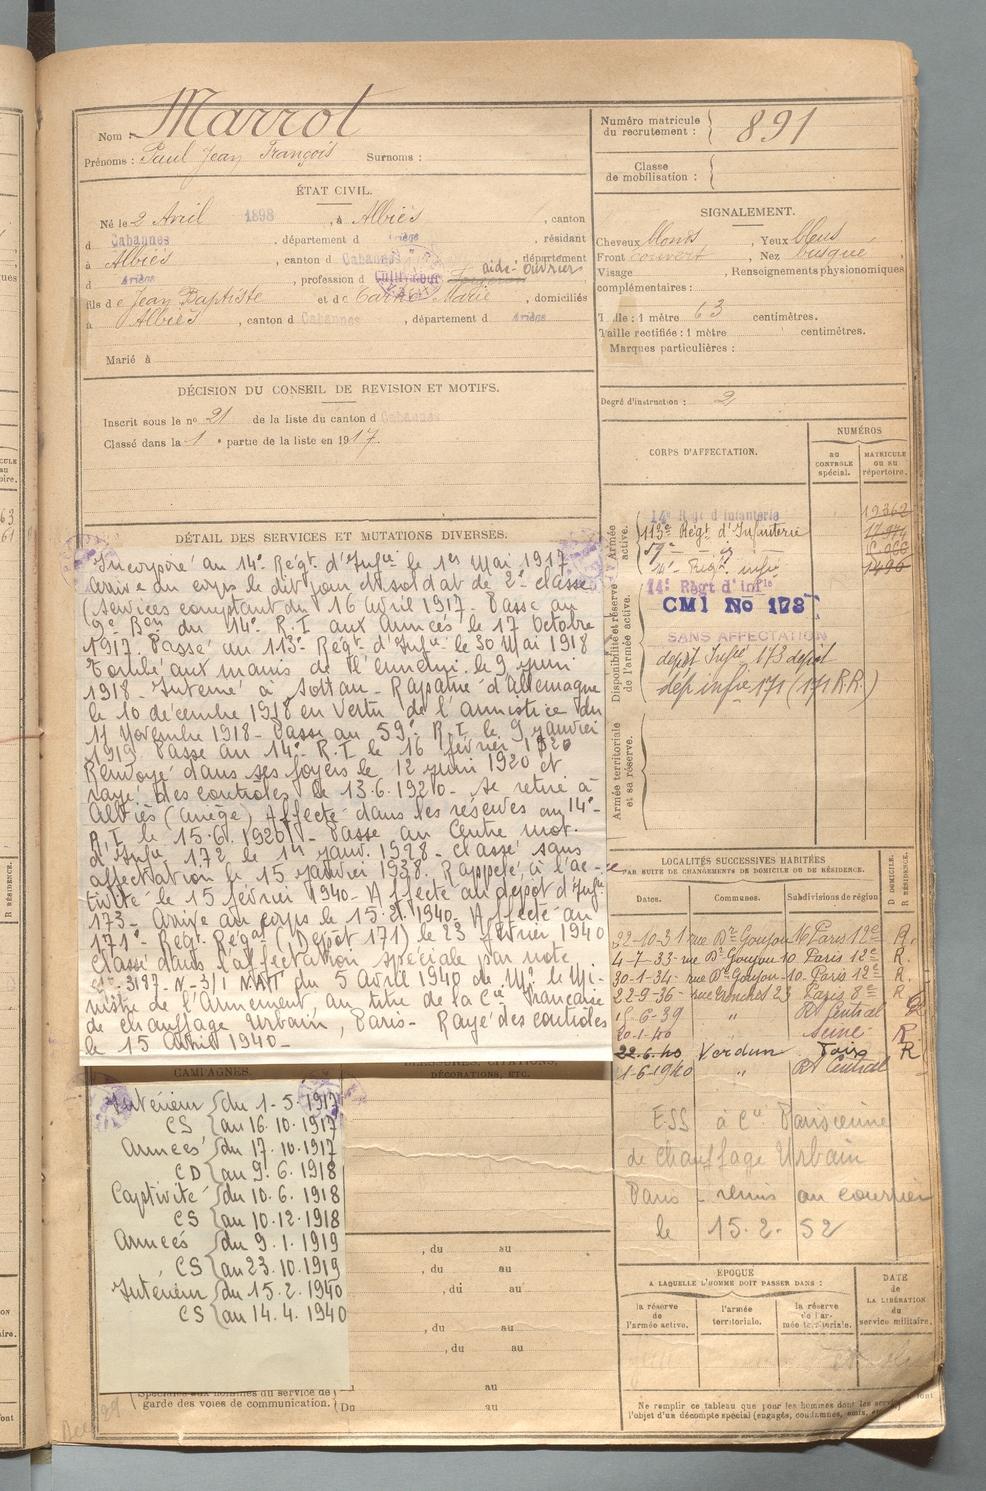 Nom : Marrot
Prénoms : Paul Jean François Surnoms :
Numéro matricule du recrutement : 891
Classe de mobilisation :
ÉTAT CIVIL.
Né le 2 Avril 1898, à Albiès, canton
d Cabannes, département d Ariège, résidant
à Albiès, canton d Cabannes, département
d Ariège, profession d Cultivateur aide-ouvrier
fils de Jean Baptiste et de Marie, domiciliés
à Albiès, canton d Cabannes, département d Ariège
Marié à
SIGNALEMENT.
Cheveux blonds, Yeux bleus
Front couvert, Nez busqué,
Visage , Renseignements physionomiques
complémentaires :
Taille : 1 mètre 63 centimètres.
Taille rectifiée : 1 mètre centimètres.
Marques particulières :
Degré d'instruction : 2
DÉCISION DU CONSEIL DE REVISION ET MOTIFS.
Inscrit sous le nº 21 de la liste du canton d Cabannes
Classé dans la 1e partie de la liste en 1917.
CORPS D'AFFECTATION.
NUMÉROS
AU CONTRÔLE spécial.
MATRICULE OU AU répertoire.
Armée active.
14e Régt d'Infanterie 12362
113e Régt d'Infanterie
59e
14e Régt infie 1490
Disponibilité et réserve de l'armée active.
14e Régt d'Infie
CMI No 173
SANS AFFECTATION
depôt Infie 173 depôt
dép infie 171 (171 R.R.)
Armée territoriale et sa réserve.
DÉTAIL DES SERVICES ET MUTATIONS DIVERSES.
Incorporé au 14e Régt d'Infie le 1er Mai 1917
arrivé au corps le dit jour et soldat de 2e classe
(services comptant du 16 avril 1917. Passé au
9e Bon du 14e R.I aux Armées le 17 Octobre
1917. Passé au 113e Régt d'Infie le 30 Mai 1918
Tombé aux mains de l'ennemi le 9 juin
1918 - Interné à Soltau - Rapatrié d'Allemagne
le 10 décembre 1918 en vertu de l'armistice du
11 Novembre 1918 - Passé au 59e R.I. le 9 janvier
1919. Passé au 14e R.I le 16 février 1920
Renvoyé dans ses foyers le 12 juin 1920 et
rayé des contrôles le 13.6.1920 - se retire à
Albiès (Ariège) Affecté dans les réserves au 14e
R.I le 15.6.1920 - Passé au Centre mob.
d'Infie 172 le 1er janv. 1928 - Classé sans
affectation le 15 janvier 1938. Rappelé à l'ac-
tivité le 15 février 1940 - Affecté au depôt d'Infie
173 - Arrivé au corps le 15.2.1940 - Affecté au
171e Régt Régal (Depôt 171) le 23 février 1940
Classé dans l'affectation spéciale par note
nº 3187 - N - 3/1 du 5 Avril 1940 de Mr le Mi-
nistre de l'Armement, au titre de la Cie Française
de chauffage Urbain, Paris - Rayé des contrôles
le 15 Avril 1940 -
LOCALITÉS SUCCESSIVES HABITÉES
PAR SUITE DE CHANGEMENTS DE DOMICILE OU DE RÉSIDENCE.
Dates. Communes. Subdivisions de région D DOMICILE. R RÉSIDENCE.
22-10-31 rue Dr Goujon 16 Paris 12e R.
4-7-33 rue Dr Goujon 10 Paris 12e R.
30-1-34 rue Dr Goujon 10 Paris 12e R
22-9-36 rue 23 Paris 8e R
6-39 " Rt Central
20-1-40 " Seine R
22.6.40 Verdun R
1-6-1940 " Rt Central
ESS à Cie Parisienne
de chauffage Urbain
Paris - remis au courrier
le 15.2.52
CAMPAGNES.
BLESSURES, CITATIONS, DÉCORATIONS, ETC.
Intérieur du 1-5-1917
CS au 16.10.1917
Armées du 17.10.1917
CD au 9.6.1918
Captivité du 10.6.1918
CS au 10.12.1918
Armées du 9.1.1919
CS au 23.10.1919
Intérieur du 15.2.1940
CS au 14.4.1940
, du au
, du au
, du au
, du au
, du au
au
Spéciales aux hommes du service de
garde des voies de communication. Du au
ÉPOQUE
A LAQUELLE L'HOMME DOIT PASSER DANS :
la réserve de l'armée active.
l'armée territoriale.
la réserve de l'armée territoriale.
DATE DE LA LIBÉRATION du service militaire.
Ne remplir ce tableau que pour les hommes dont les
l'objet d'un décompte spécial (engagés, condamnés, omis,